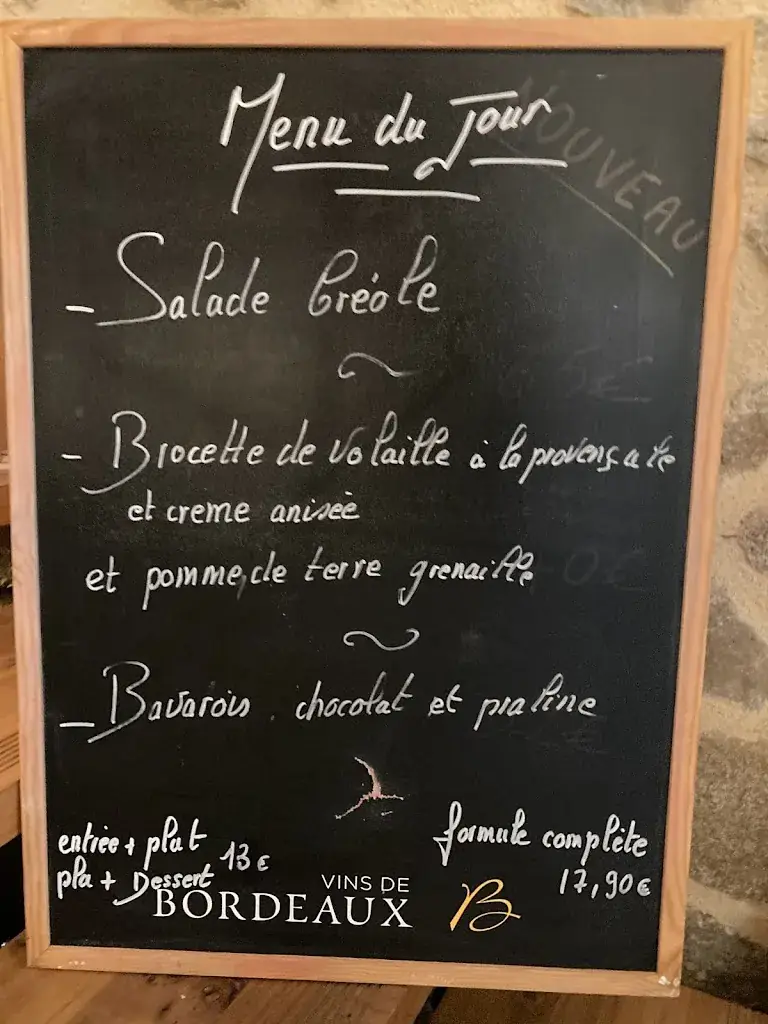 Menu du Jour
NOUVEAU
- Salade Créole
5€
- Brocette de volaille à la provençale
et creme anisée
et pomme de terre grenaille
- Bavarois chocolat et praline
entrée + plat
pla + Dessert
13€
formule complète
17,90€
VINS DE
BORDEAUX
B